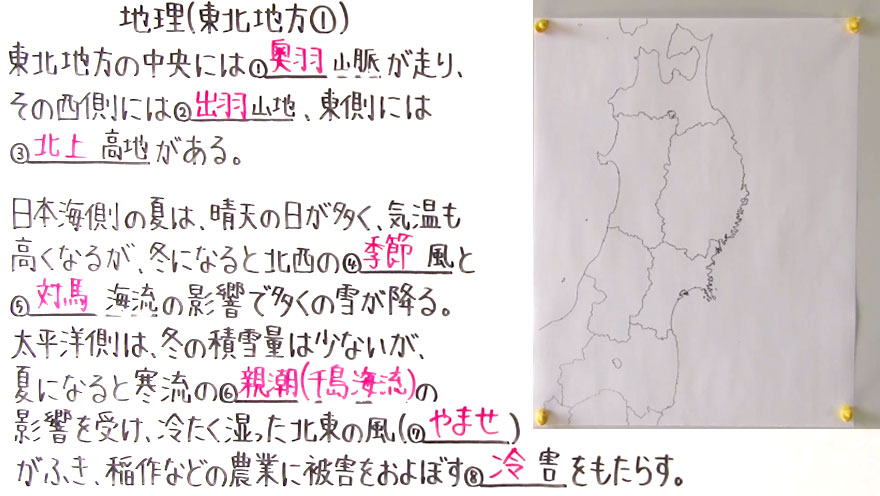 地理(東北地方①)
東北地方の中央には①奥羽山脈が走り、
その西側には②出羽山地、東側には
③北上高地がある。
日本海側の夏は、晴天の日が多く、気温も
高くなるが、冬になると北西の④季節風と
⑤対馬海流の影響で多くの雪が降る。
太平洋側は、冬の積雪量は少ないが、
夏になると寒流の⑥親潮(千島海流)の
影響を受け、冷たく湿った北東の風(⑦やませ)
がふき、稲作などの農業に被害をおよぼす⑧冷害をもたらす。